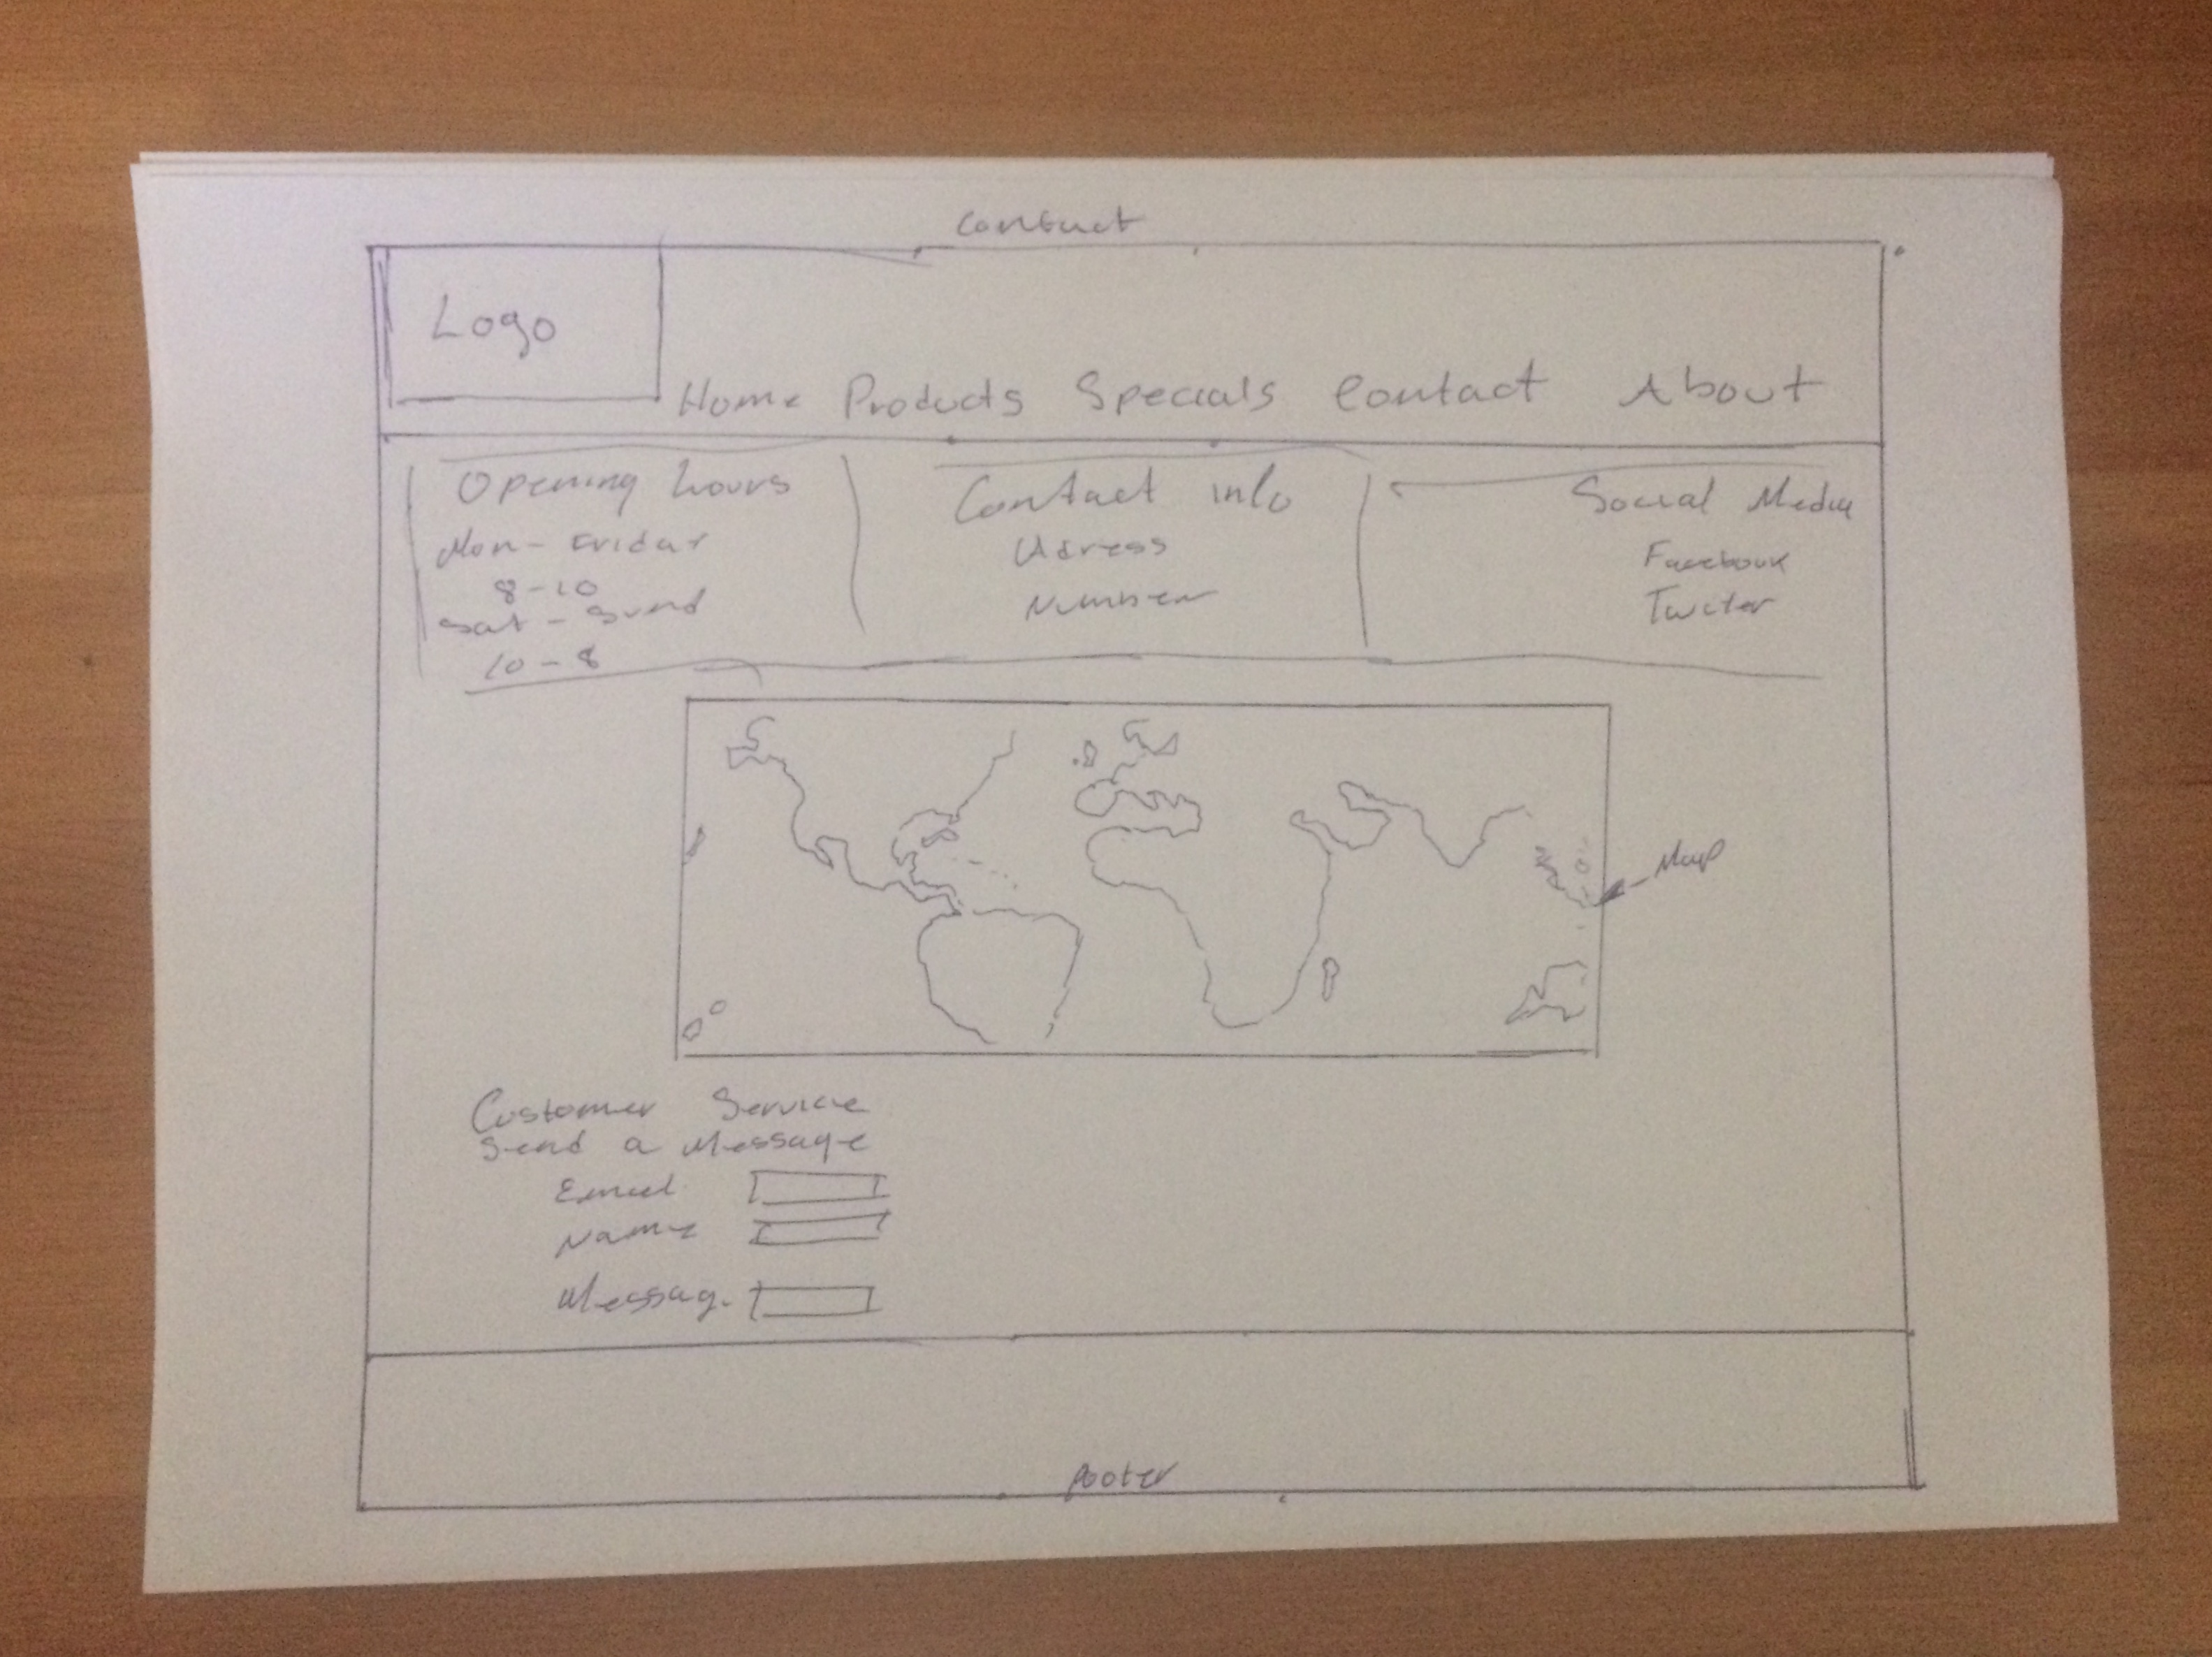 Contact
Logo
Home Products Specials Contact About
Opening hours
Mon - Friday
8-10
Sat - Sund
10-8
Contact info
Adress
Number
Social Media
Facebook
Twitter
Map
Customer Service
Send a Message
Email
Name
Messag.
footer